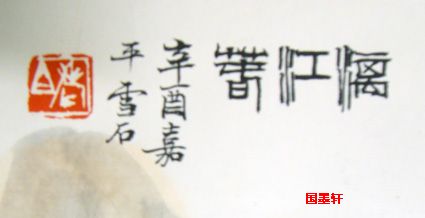 漓江春
辛酉嘉
平 雪石
国墨轩